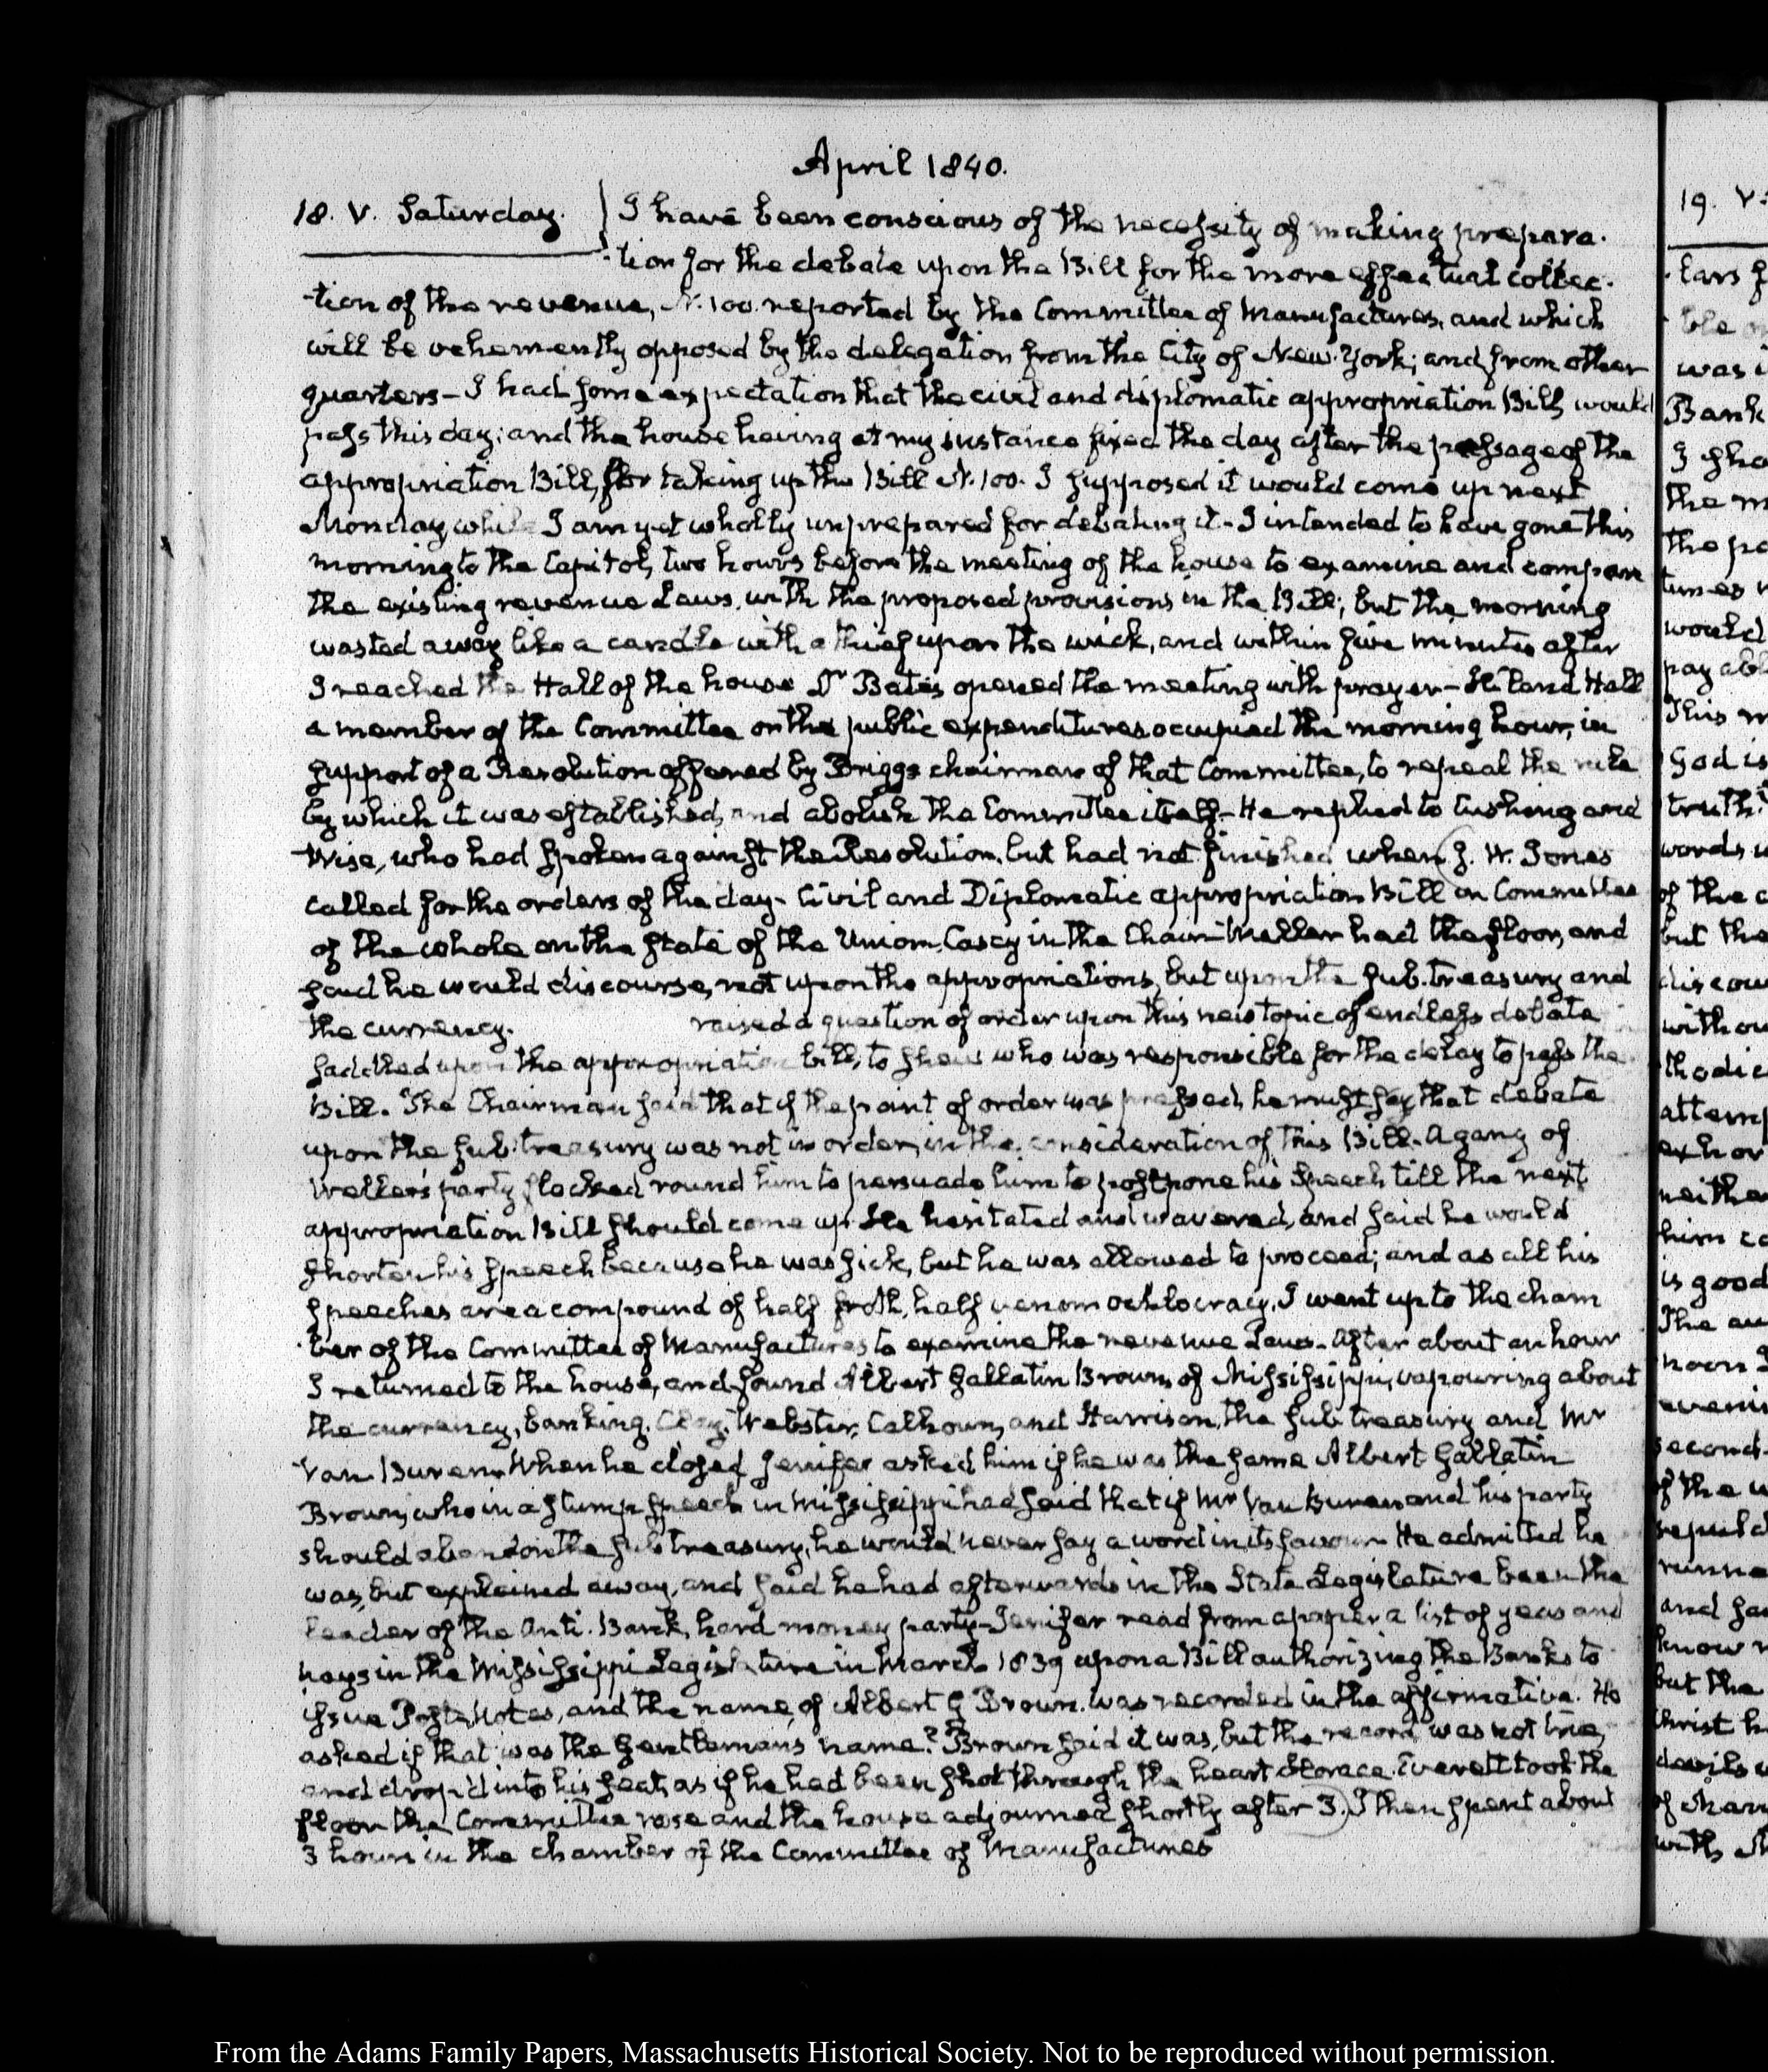 April 1840.
18. V. Saturday. I have been conscious of the necessity of making prepara-
-tion for the debate upon the Bill for the more effectual collec-
-tion of the revenue, N. 100. reported by the Committee of Manufactures, and which
will be vehemently opposed by the delegation from the City of New-York; and from other
quarters— I had some expectation that the civil and diplomatic appropriation Bill would
pass this day; and the house having at my instance fixed the day after the passage of the
appropriation Bill, for taking up the Bill N. 100. I supposed it would come up next
Monday, while I am yet wholly unprepared for debating it— I intended to have gone this
morning to the Capitol, two hours before the meeting of the house to examine and compare
the existing revenue Laws, with the proposed provisions in the Bill; but the morning
wasted away like a candle with a thief upon the wick, and within five minutes after
I reached the Hall of the house Mr Bates opened the meeting with prayer— Hiland Hall
a member of the Committee on the public expenditures occupied the morning hour, in
support of a Resolution offered by Briggs chairman of that Committee, to repeal the rule
by which it was established, and abolish the Committee itself— He replied to Cushing and
Wise, who had spoken against the Resolution, but had not finished when J. W. Jones
called for the orders of the day— Civil and Diplomatic appropriation Bill in Committee
of the whole on the state of the Union, Casey in the Chair— Weller had the floor, and
said he would discourse, not upon the appropriations, but upon the sub-treasury and
the currency. raised a question of order upon this new topic of endless debate
saddled upon the appropriation bill, to shew who was responsible for the delay to pass the
Bill. The Chairman said that if the point of order was pressed, he must say that debate
upon the sub-treasury was not in order, in the consideration of this Bill— A gang of
Weller's party flocked round him to persuade him to postpone his speech till the next
appropriation Bill should come up. He hesitated and wavered, and said he would
shorten his speech because he was sick, but he was allowed to proceed; and as all his
speeches are a compound of half froth, half venom ochlocracy, I went up to the cham
-ber of the Committee of Manufactures to examine the revenue Laws— After about an hour
I returned to the house, and found Albert Gallatin Brown, of Mississippi, vapouring about
the currency, banking, Clay, Webster, Calhoun, and Harrison, the sub treasury and Mr
Van Buren. When he closed Jenifer asked him if he was the same Albert Gallatin
Brown, who in a stump speech in Mississippi had said that if Mr Van Buren and his party
should abandon the sub treasury, he would never say a word in its favour— He admitted he
was, but explained away, and said he had afterwards in the State Legislature been the
leader of the Anti-Bank, hard money party— Jenifer read from a paper a list of yeas and
nays in the Mississippi Legislature in March 1839 upon a Bill authorizing the Banks to
issue Post Notes, and the name of Albert G Brown was recorded in the affirmative. He
asked if that was the Gentleman's name? Brown said it was, but the record was not true,
and drop'd into his seat, as if he had been shot through the heart. Horace Everett took the
floor the Committee rose and the house adjourned shortly after 3. I then spent about
3 hours in the chamber of the Committee of Manufactures
19. V.
From the Adams Family Papers, Massachusetts Historical Society. Not to be reproduced without permission.